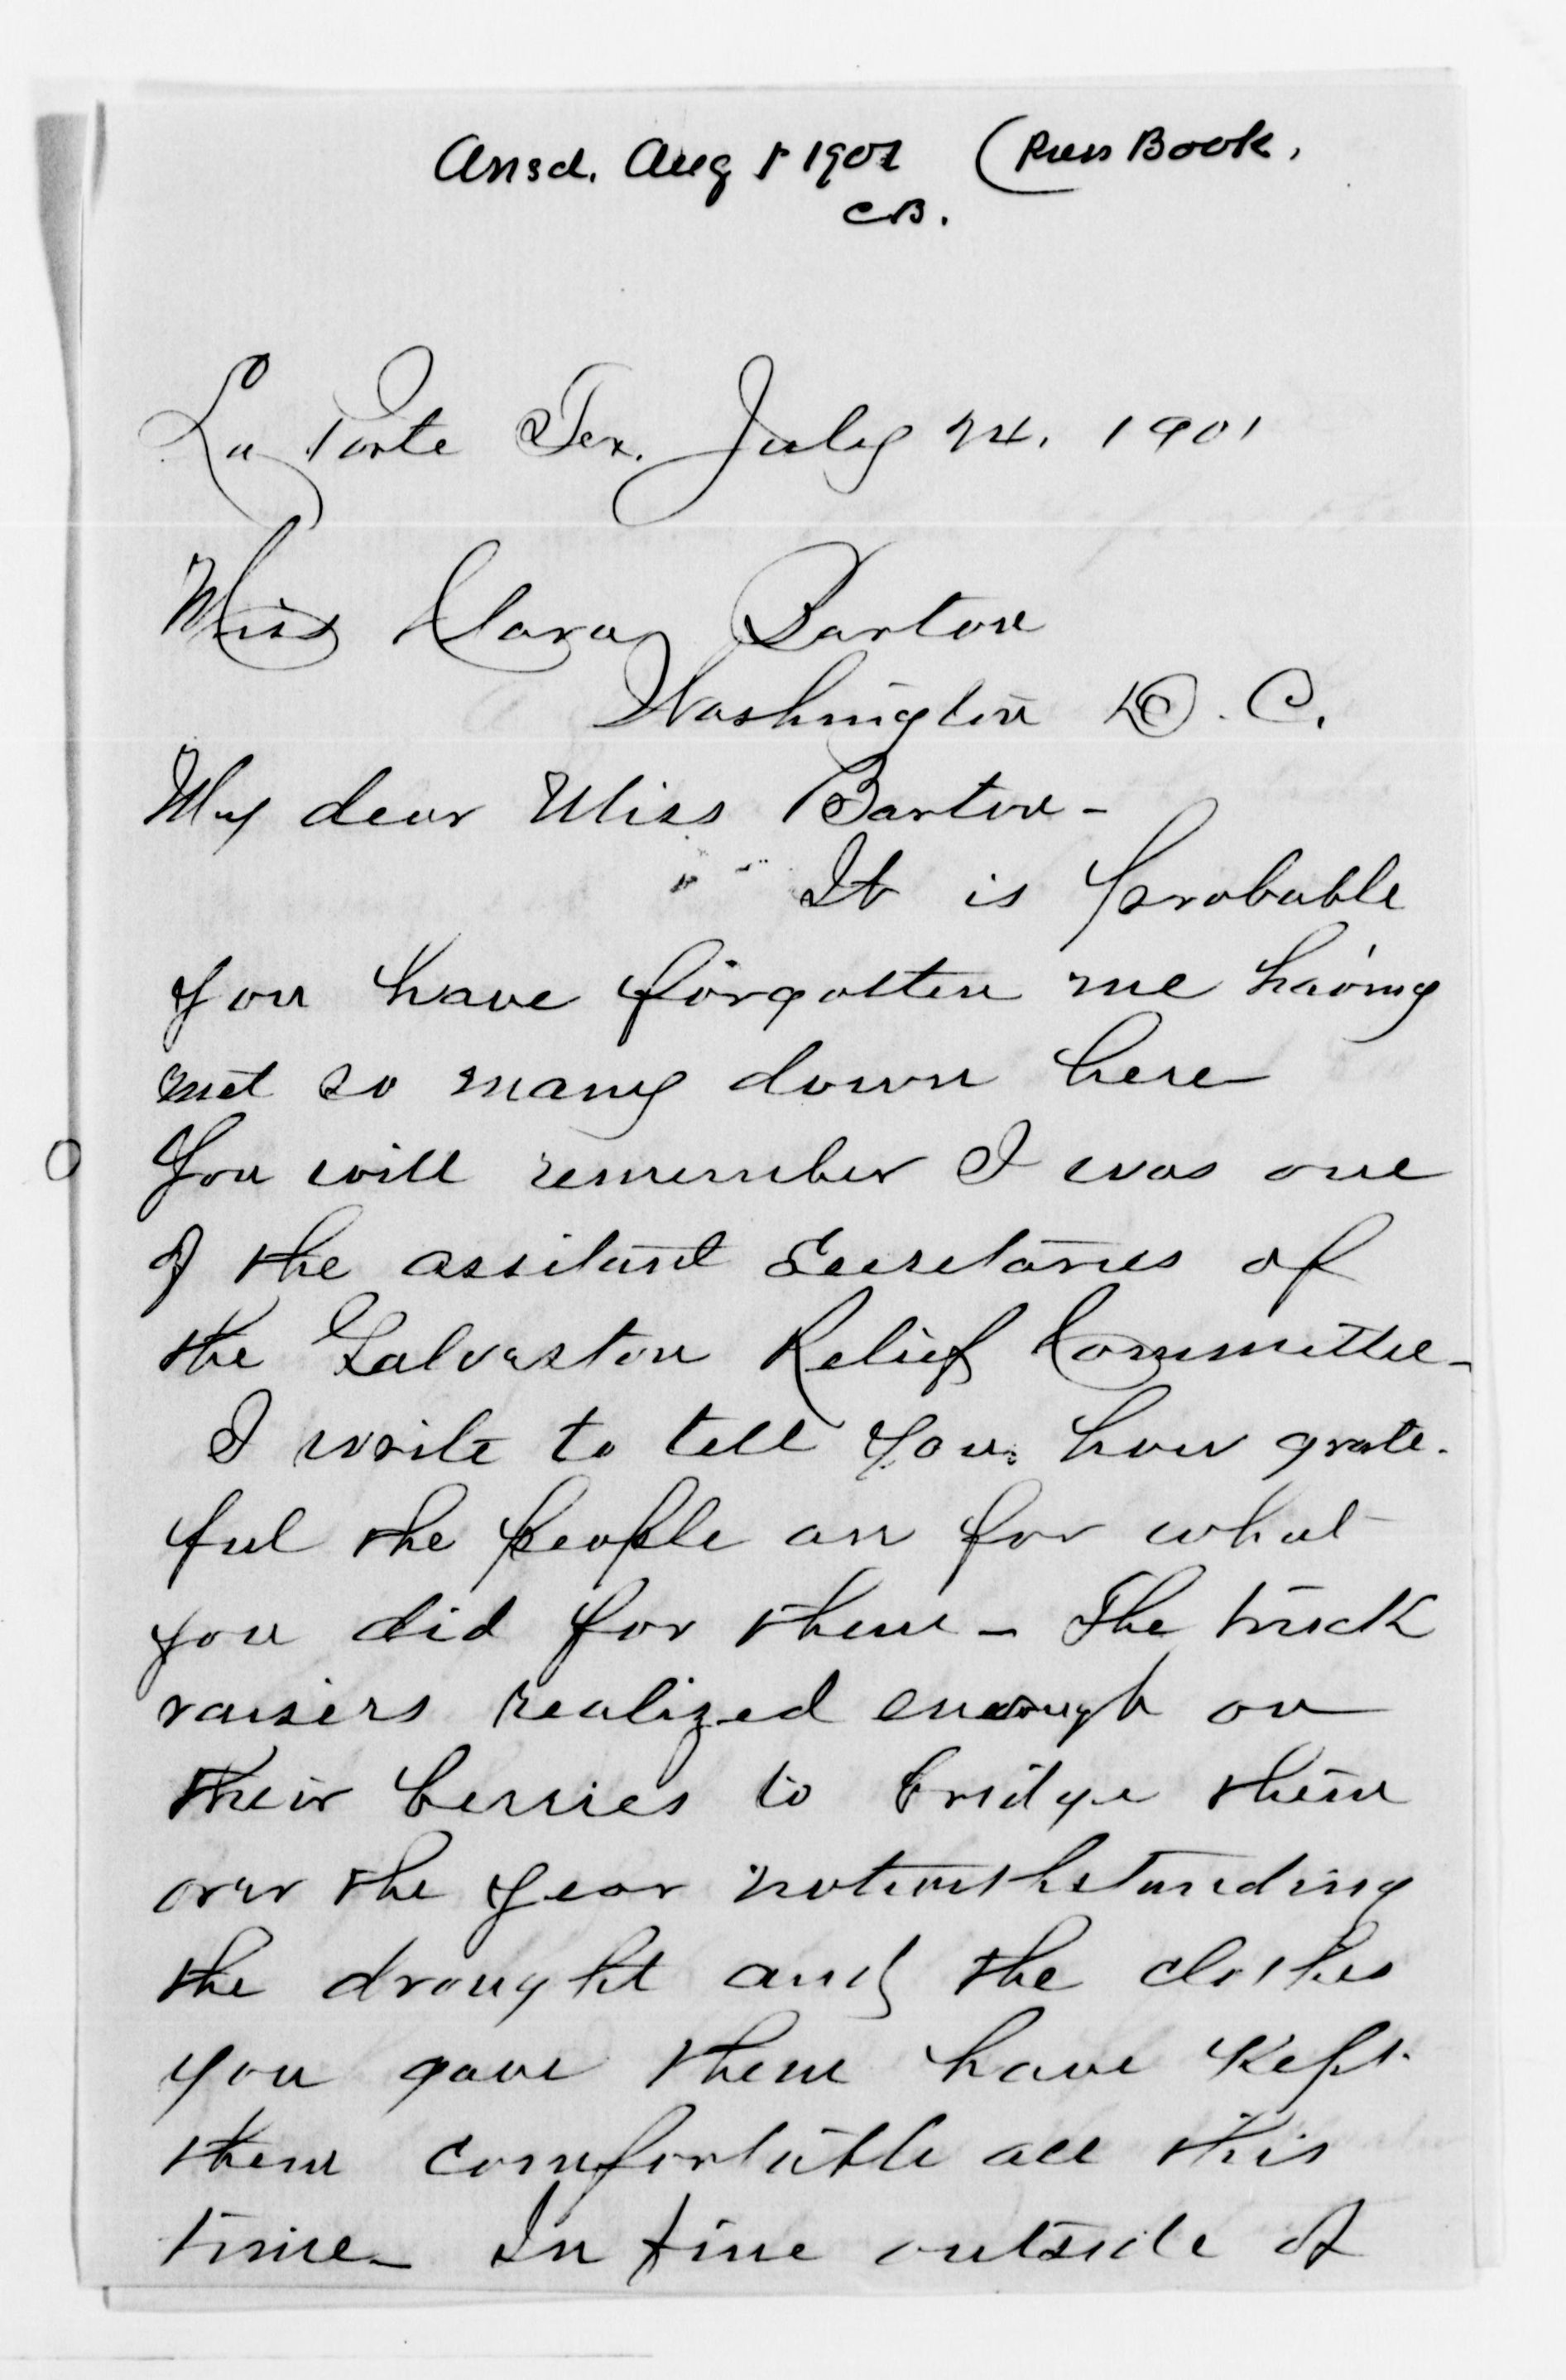 Ansd. Aug 5 1901 (Press Book.
CB.
La Porte Tex. July 24. 1901
Miss Clara Barton
Washington D. C.
My dear Miss Barton -
It is probable
you have forgotten me having
met so many down here
You will remember I was one
of the assitant Secretaries of
the Galveston Relief Committee -
I write to tell you how grate-
ful the people are for what
you did for them - The truck
raisers realized enough on
their berries to bridge them
over the year notwithstanding
the drought and the clothes
you gave them have kept
them comfortable all this
time - In fine outside of